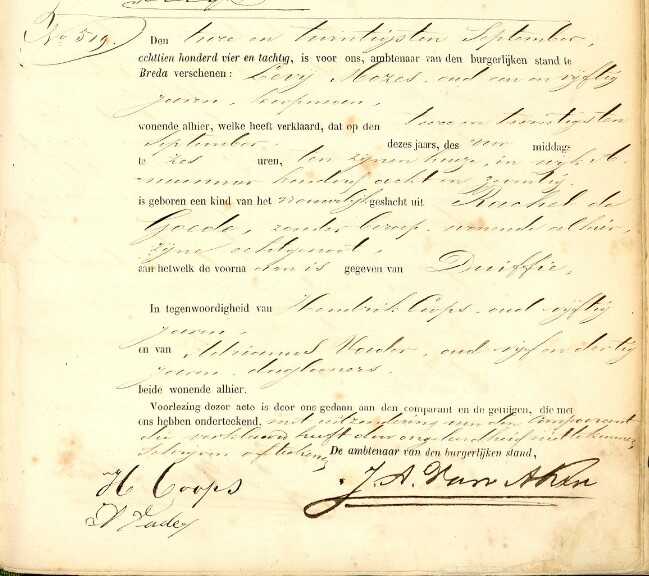 No 519.
Den twee en twintigsten September,
echttien honderd vier en tachtig, is voor ons, ambtenaar van den burgerlijken stand te
Breda verschenen: Levij Mozes, oud een en vijftig
jaren, koopman,
wonende alhier, welke heeft verklaard, dat op den twee en twintigsten
September dezes jaars, des voor middags
te zes uren, ten zijnen huize, in wijk A.
nummer honderd acht en zeventig.
is geboren een kind van het vrouwelijk geslacht uit Rachel de
Goede, zonder beroep, wonende alhier,
zijne echtgenoot,
aan hetwelk de voornaam is gegeven van Duiffie,
In tegenwoordigheid van Hendrik Coops, oud vijftig
jaren,
en van Adrianus Vader, oud vijf en dertig
jaren, dagloners.
beide wonende alhier.
Voorlezing dezer acte is door ons gedaan aan den comparant en de getuigen, die met
ons hebben onderteekend, met uitzondering van den Comparant
die verklaard heeft
De ambtenaar van den burgerlijken stand,
H Coops
J. A. Van Aken
A Vader